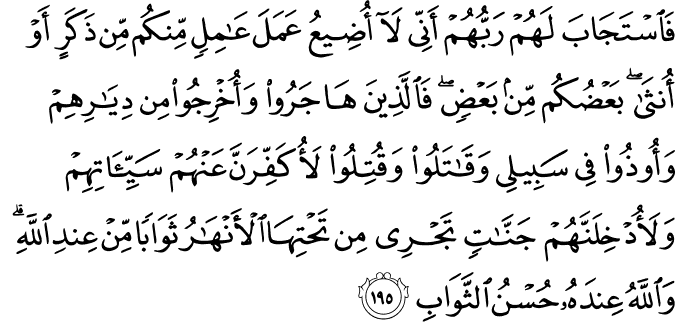 فَٱسۡتَجَابَ لَهُمۡ رَبُّهُمۡ أَنِّى لَآ أُضِيعُ عَمَلَ عَٰمِلٖ مِّنكُم مِّن ذَكَرٍ أَوۡ
أُنثَىٰۖ بَعۡضُكُم مِّنۢ بَعۡضٖۖ فَٱلَّذِينَ هَاجَرُواْ وَأُخۡرِجُواْ مِن دِيَٰرِهِمۡ
وَأُوذُواْ فِى سَبِيلِى وَقَٰتَلُواْ وَقُتِلُواْ لَأُكَفِّرَنَّ عَنۡهُمۡ سَيِّـَٔاتِهِمۡ
وَلَأُدۡخِلَنَّهُمۡ جَنَّٰتٖ تَجۡرِى مِن تَحۡتِهَا ٱلۡأَنۡهَٰرُ ثَوَابٗا مِّنۡ عِندِ ٱللَّهِۚ
وَٱللَّهُ عِندَهُۥ حُسۡنُ ٱلثَّوَابِ ١٩٥